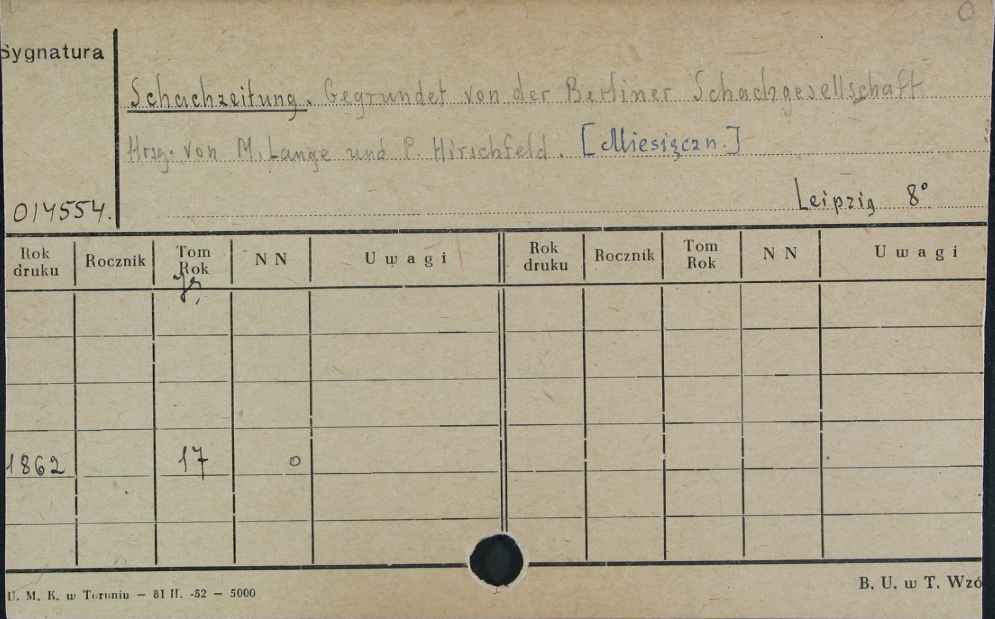 Sygnatura
Schachzeitung. Gegrundet von der Berliner Schachgesellschaft
Hrsg. von M. Lange und P. Hirschfeld. [Miesięczn.]
014554.
Leipzig 8°
Rok druku Rocznik Tom Rok NN Uwagi Rok druku Rocznik Tom Rok NN Uwagi
1862 17 o
U. M. K. w Toruniu — 81 II. -52 — 5000
B. U. w T. Wzó